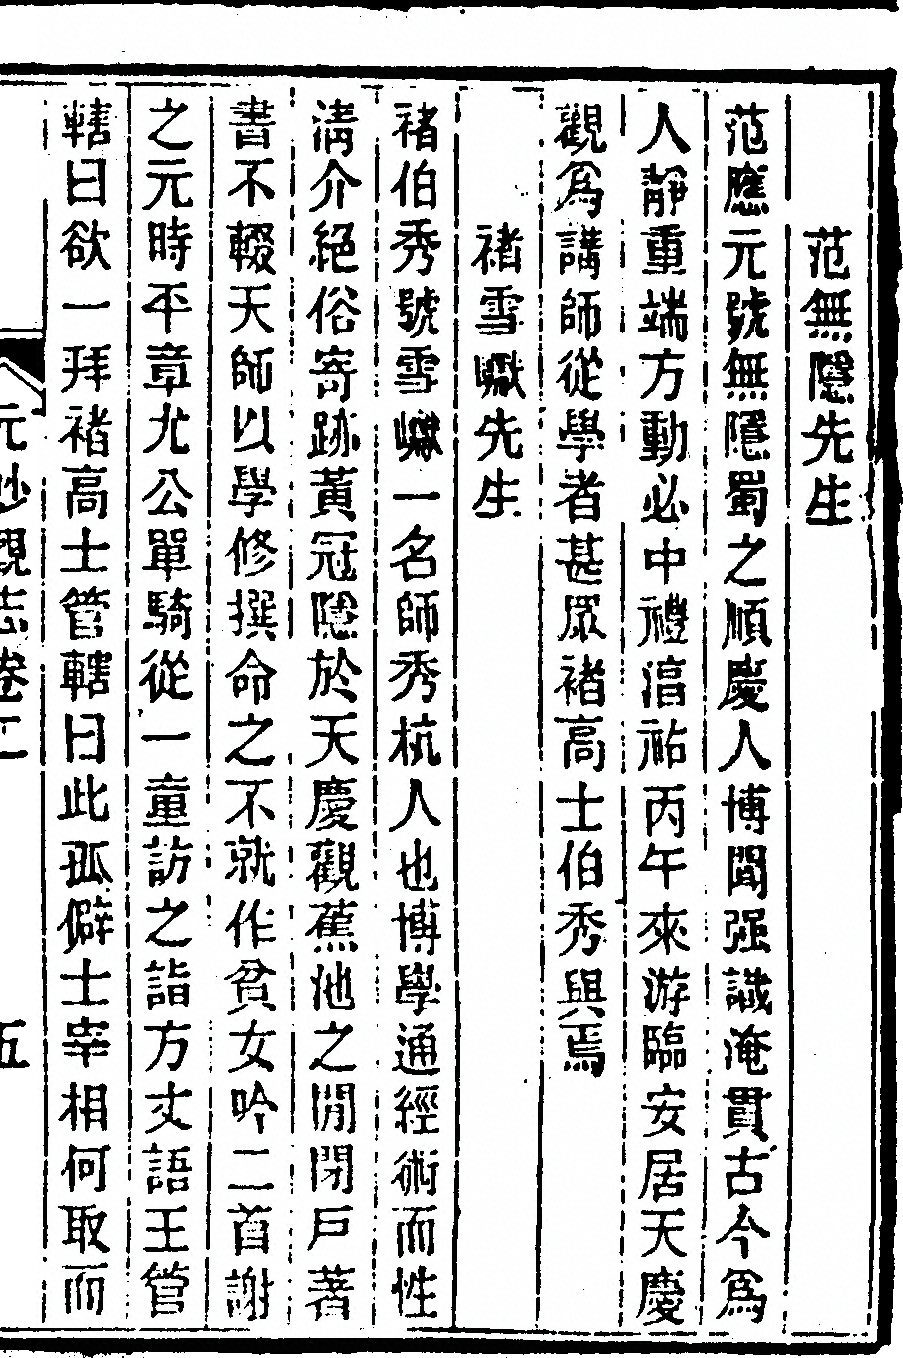 范無隱先生
范應元號無隱蜀之順慶人博聞强識淹貫古今爲
人靜重端方動必中禮淳祐丙午來游臨安居天慶
觀爲講師從學者甚眾褚高士伯秀與焉
褚雪巘先生
褚伯秀號雪巘一名師秀杭人也博學通經術而性
清介絕俗寄跡黃冠隱於天慶觀蕉池之閒閉戸著
書不輟天師以學修撰命之不就作貧女吟二首謝
之元時平章尤公單騎從一童訪之詣方丈語王管
轄曰欲一拜褚高士管轄曰此孤僻士宰相何取而
元妙觀志卷二 五